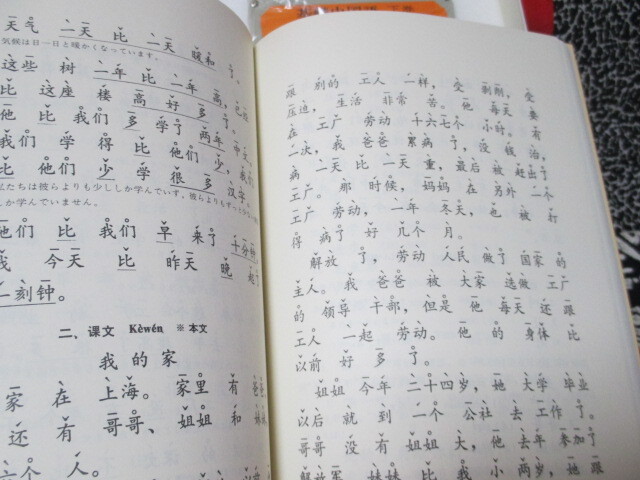 天气 一天 比 一天 暖和 了。
気候は日一日と暖かくなっています。
这些 树 一年 比 一年 高，已经
比 这座 楼 高 好 多 了。
他 比 我们 多 学了 两年 中文。
我们 学 得 比 他们 少，我们
比 他们 少 学 很 多 汉字。
私たちは彼らよりも少ししか学んでいず，彼らよりも
しか学んでいません。
他们 比 我们 早 来了 十分钟
我 今天 比 昨天 晚 起了
一刻钟。
二、课文 Kèwén ※本文
我 的 家
家 在 上海。家里 有 爸爸
还 有 哥哥、姐姐 和 妹妹
六个 人。
跟 别的 工人 一样，受 剥削，受
压迫，生活 非常 苦。他 每天 要
在 工厂 劳动 十六七个 小时。有
一次，我 爸爸 累病 了，没 钱 治，
病 一天 比 一天 重，最后 被 赶出了
工厂。那 时候，妈妈 在 另外 一个
工厂 劳动，一年 冬天，也 被 打
得 病了 好 几个 月。
解放 了，劳动 人民 做了 国家 的
主人。我 爸爸 被 大家 选做 工厂
的 领导 干部，但是 他 每天 还 跟
工人 一起 劳动。他 的 身体 比
以前 好 多 了。
姐姐 今年 二十四岁，她 大学 毕业
以后 就 到 一个 公社 去 工作 了。
哥哥 没 有 姐姐 大，他 去年 参加了
解放军。妹妹 比 我 小 两岁，她 跟